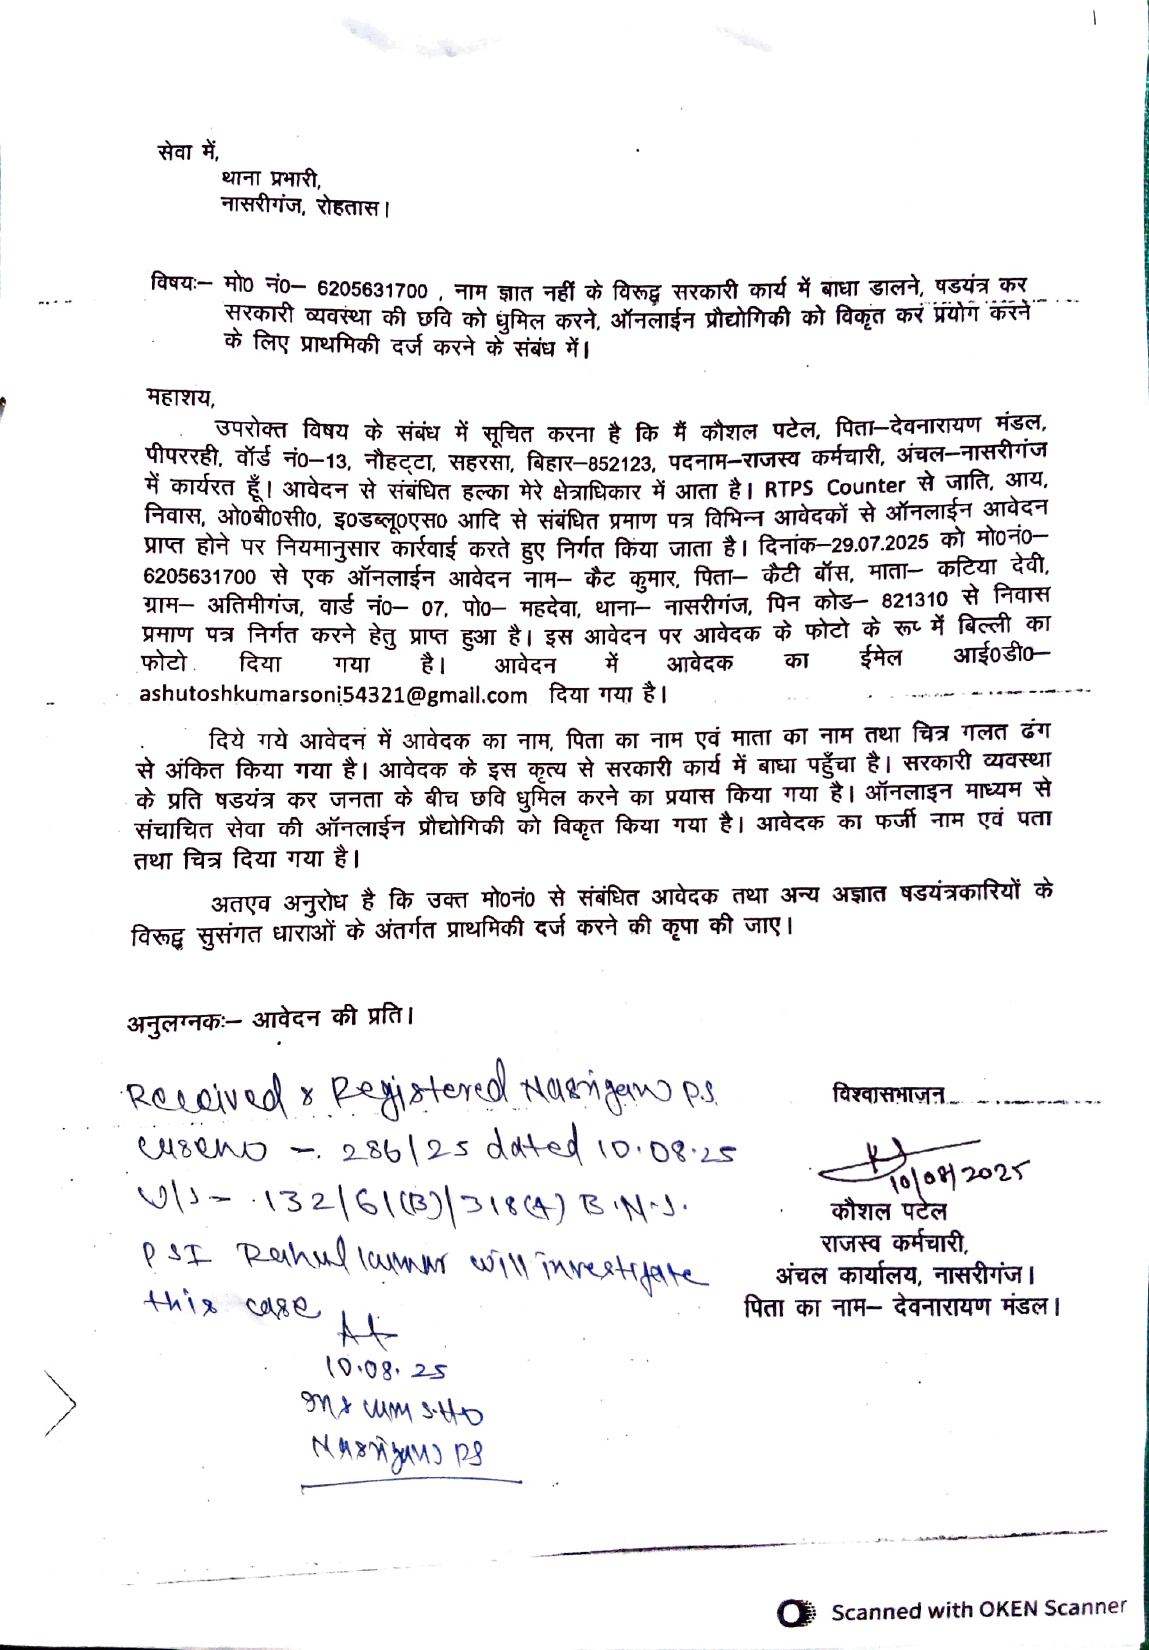 1
सेवा में,
थाना प्रभारी,
नासरीगंज, रोहतास।
विषयः– मो0 नं0– 6205631700 , नाम ज्ञात नहीं के विरूद्ध सरकारी कार्य में बाधा डालने, षडयंत्र कर
सरकारी व्यवस्था की छवि को धुमिल करने, ऑनलाईन प्रौद्योगिकी को विकृत कर प्रयोग करने
के लिए प्राथमिकी दर्ज करने के संबंध में।
महाशय,
उपरोक्त विषय के संबंध में सूचित करना है कि मैं कौशल पटेल, पिता–देवनारायण मंडल,
पीपररही, वॉर्ड नं0–13, नौहट्टा, सहरसा, बिहार–852123, पदनाम–राजस्व कर्मचारी, अंचल–नासरीगंज
में कार्यरत हूँ। आवेदन से संबंधित हल्का मेरे क्षेत्राधिकार में आता है। RTPS Counter से जाति, आय,
निवास, ओ0बी0सी0, इ0डब्लू0एस0 आदि से संबंधित प्रमाण पत्र विभिन्न आवेदकों से ऑनलाईन आवेदन
प्राप्त होने पर नियमानुसार कार्रवाई करते हुए निर्गत किया जाता है। दिनांक–29.07.2025 को मो0नं0–
6205631700 से एक ऑनलाईन आवेदन नाम– कैट कुमार, पिता– कैटी बॉस, माता– कटिया देवी,
ग्राम– अतिमीगंज, वार्ड नं0– 07, पो0– महदेवा, थाना– नासरीगंज, पिन कोड– 821310 से निवास
प्रमाण पत्र निर्गत करने हेतु प्राप्त हुआ है। इस आवेदन पर आवेदक के फोटो के रूप में बिल्ली का
फोटो दिया गया है। आवेदन में आवेदक का ईमेल आई0डी0–
ashutoshkumarsoni54321@gmail.com दिया गया है।
दिये गये आवेदन में आवेदक का नाम, पिता का नाम एवं माता का नाम तथा चित्र गलत ढंग
से अंकित किया गया है। आवेदक के इस कृत्य से सरकारी कार्य में बाधा पहुँचा है। सरकारी व्यवस्था
के प्रति षडयंत्र कर जनता के बीच छवि धुमिल करने का प्रयास किया गया है। ऑनलाइन माध्यम से
संचाचित सेवा की ऑनलाईन प्रौद्योगिकी को विकृत किया गया है। आवेदक का फर्जी नाम एवं पता
तथा चित्र दिया गया है।
अतएव अनुरोध है कि उक्त मो0नं0 से संबंधित आवेदक तथा अन्य अज्ञात षडयंत्रकारियों के
विरूद्ध सुसंगत धाराओं के अंतर्गत प्राथमिकी दर्ज करने की कृपा की जाए।
अनुलग्नकः– आवेदन की प्रति।
Received & Registered Nasriganj P.S.
case no – 286/25 dated 10.08.25
U/S – 132/61(B)/318(4) B.N.S.
PSI Rahul kumar will investigate
this case
10.08.25
Ins cum S.H.O
Nasriganj PS
विश्वासभाजन
10/08/2025
कौशल पटेल
राजस्व कर्मचारी,
अंचल कार्यालय, नासरीगंज।
पिता का नाम– देवनारायण मंडल।
Scanned with OKEN Scanner